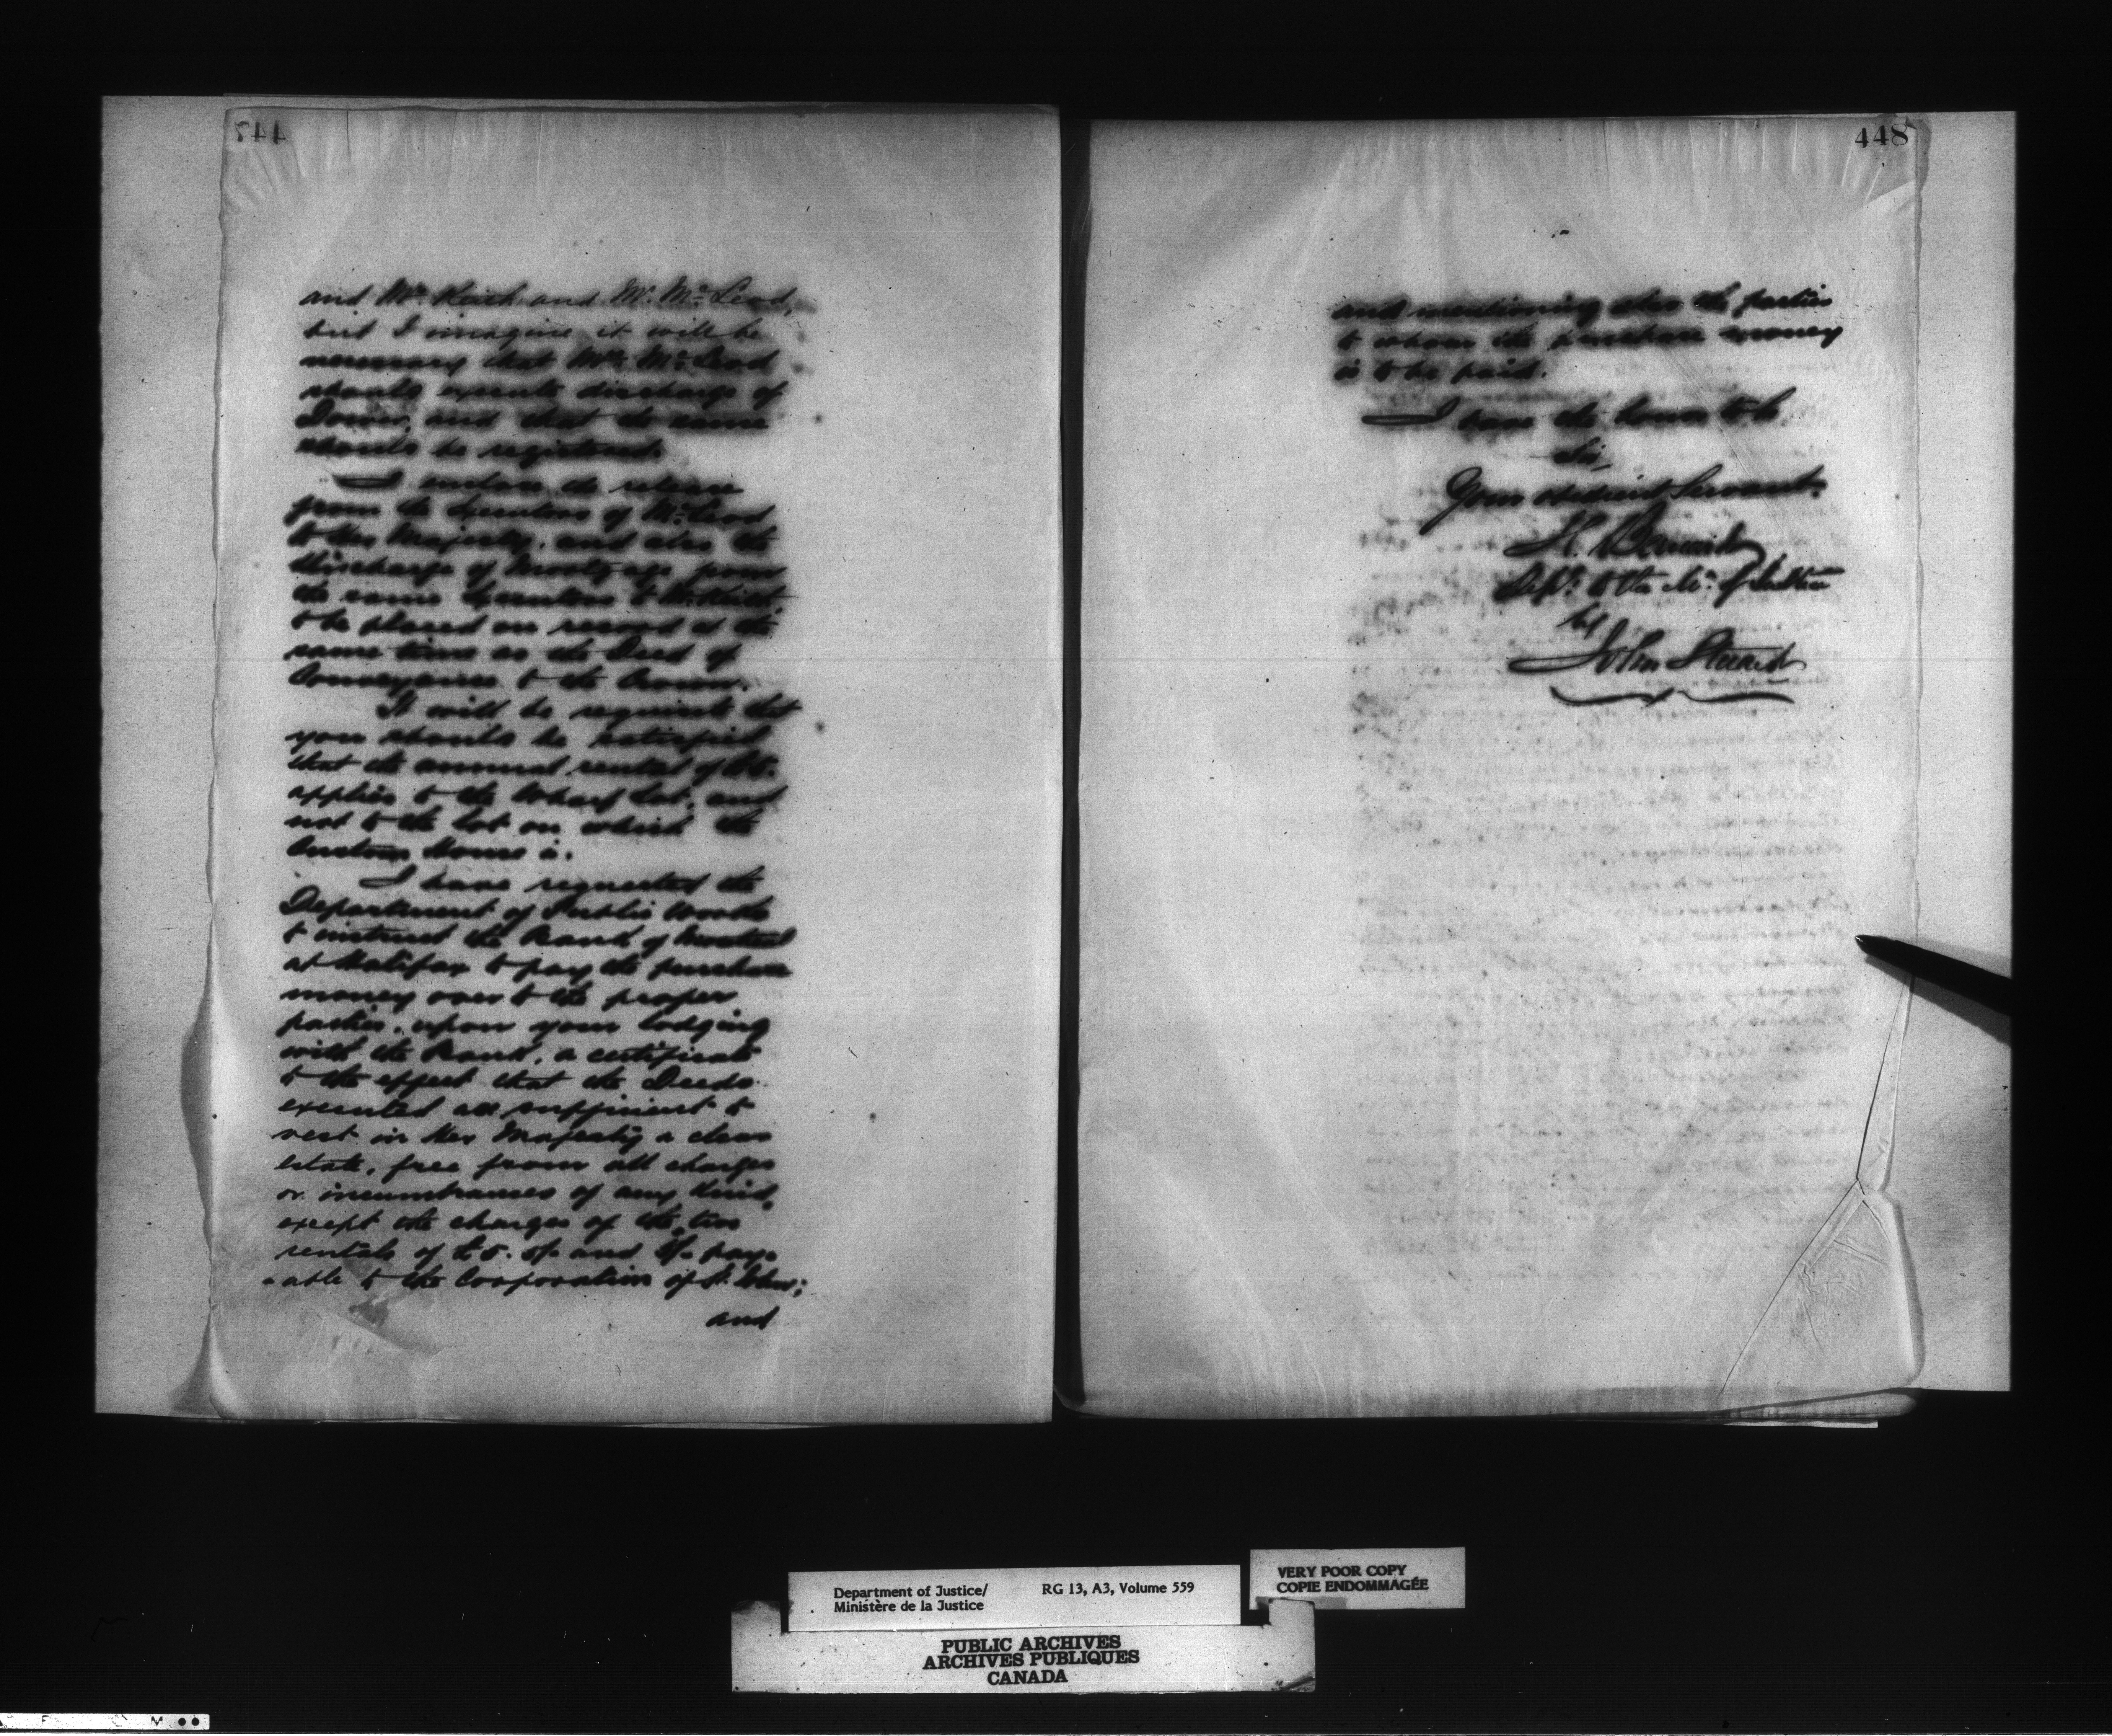 447
and Mr. Keith and Mr. McLeod,
but I imagine it will be
necessary that Mrs. McLeod
should execute discharge of
Dower, and that the same
should be registered.
I enclose the release
from the Executors of McLeod
to Her Majesty, and also the
discharge of Mortgage from
the same Executors to
to be placed on record at the
same time as the Deed of
Conveyance to the Crown.
It will be requisite that
you should be satisfied
that the annual rental of £5.
applies to the Wharf Lot, and
not to the lot on which the
Custom House is.
I have requested the
Department of Public Works
to instruct the Bank of Montreal
at Halifax to pay the purchase
money over to the proper
parties, upon your lodging
with the Bank, a certificate
to the effect that the Deeds
executed are sufficient to
vest in Her Majesty a clear
estate, free from all charges
or incumbrances of any kind,
except the charges of the two
rentals of £5. and pay-
-able to the Corporation of St. John;
and
448
and mentioning also the parties
to whom the purchase money
is to be paid.
I have the honor to be
Sir,
Your obedient Servant.
H. Bernard
of Justice
by
John Stuart
Department of Justice/ RG 13, A3, Volume 559
Ministère de la Justice
VERY POOR COPY
COPIE ENDOMMAGÉE
PUBLIC ARCHIVES
ARCHIVES PUBLIQUES
CANADA